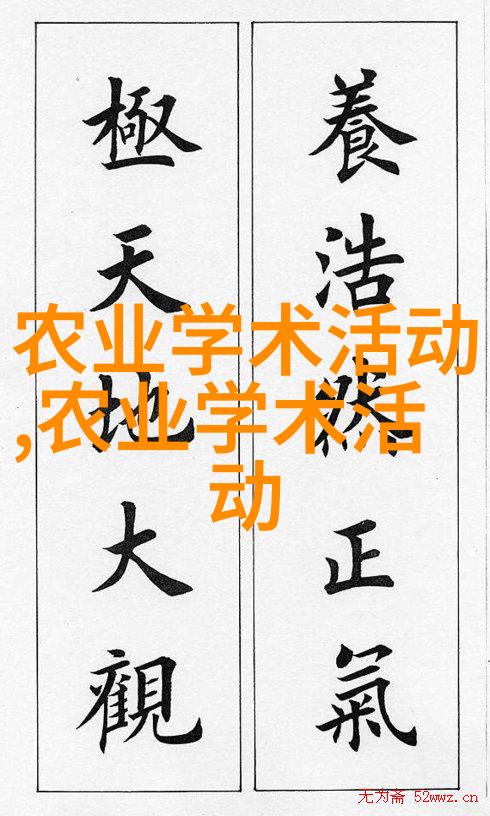 養浩然正氣
極天地大觀
农业学术活动
,农业学术活
动
无为斋 52wwz.cn